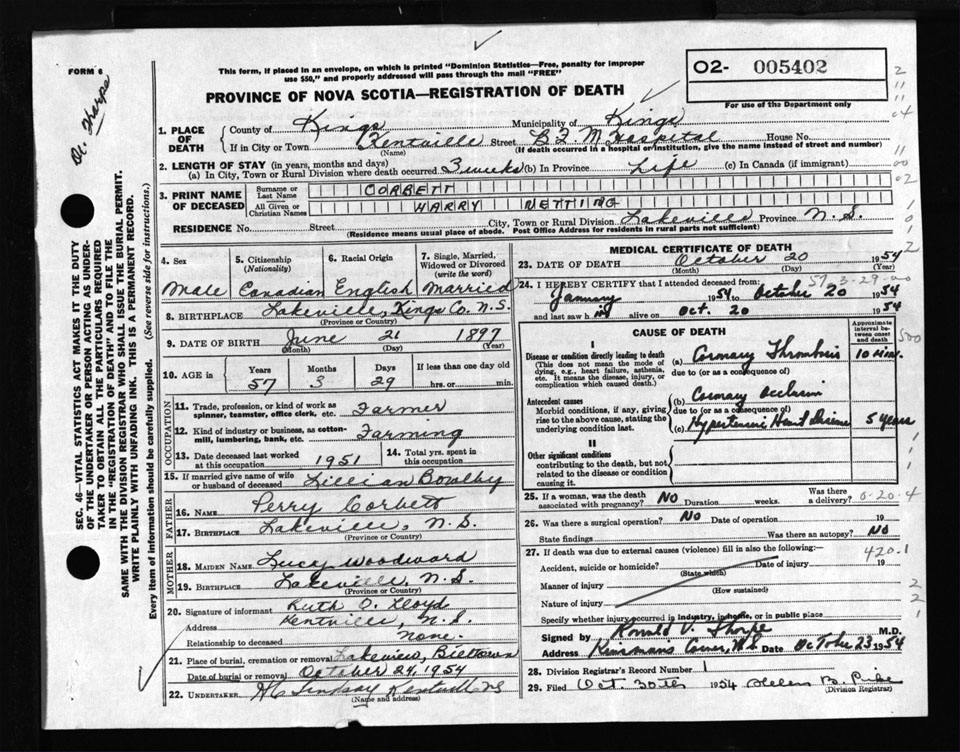 FORM 6
This form, if placed in an envelope, on which is printed "Dominion Statistics—Free, penalty for improper
use $50," and properly addressed will pass through the mail "FREE"
PROVINCE OF NOVA SCOTIA—REGISTRATION OF DEATH
02- 005402
For use of the Department only
Dr. Tharpe
SEC. 46—VITAL STATISTICS ACT MAKES IT THE DUTY
OF THE UNDERTAKER OR PERSON ACTING AS UNDER-
TAKER TO OBTAIN ALL THE PARTICULARS REQUIRED
IN THE "REGISTRATION OF DEATH" AND TO FILE THE
SAME WITH THE DIVISION REGISTRAR WHO SHALL ISSUE THE BURIAL PERMIT.
WRITE PLAINLY WITH UNFADING INK. THIS IS A PERMANENT RECORD.
Every item of information should be carefully supplied. (See reverse side for instructions.)
1. PLACE OF DEATH
County of Kings Municipality of Kings
If in City or Town Kentville Street B F M Hospital House No.
(Name) (If death occurred in a hospital or institution, give the name instead of street and number)
2. LENGTH OF STAY (in years, months and days)
(a) In City, Town or Rural Division where death occurred 3 weeks (b) In Province Life (c) In Canada (if immigrant)
3. PRINT NAME OF DECEASED
Surname or Last Name CORBETT
All Given or Christian Names HARRY NETTING
RESIDENCE No. Street City, Town or Rural Division Lakeville Province N.S.
(Residence means usual place of abode. Post Office Address for residents in rural parts not sufficient)
4. Sex Male
5. Citizenship (Nationality) Canadian
6. Racial Origin English
7. Single, Married, Widowed or Divorced (write the word) Married
8. BIRTHPLACE Lakeville, Kings Co. N.S.
(Province or Country)
9. DATE OF BIRTH June 21 1897
(Month) (Day) (Year)
10. AGE in Years Months Days If less than one day
57 3 29 hrs. or min.
OCCUPATION
11. Trade, profession, or kind of work as spinner, teamster, office clerk, etc. Farmer
12. Kind of industry or business, as cotton-mill, lumbering, bank, etc. Farming
13. Date deceased last worked at this occupation 1951
14. Total yrs. spent in this occupation
15. If married give name of wife or husband of deceased Lillian Bowlby
FATHER
16. NAME Perry Corbett
17. BIRTHPLACE Lakeville, N.S.
(Province or Country)
MOTHER
18. MAIDEN NAME Lucy Woodward
19. BIRTHPLACE Lakeville, N.S.
(Province or Country)
20. Signature of informant Ruth O. Lloyd
Address Kentville, N.S.
Relationship to deceased None.
21. Place of burial, cremation or removal Lakeview, Billtown
Date of burial or removal October 24, 1954
22. UNDERTAKER Lindsay Kentville NS
(Name and address)
MEDICAL CERTIFICATE OF DEATH
23. DATE OF DEATH October 20 1954
(Month) (Day) (Year)
57-3-29
24. I HEREBY CERTIFY that I attended deceased from:
January 1954 to October 20 1954
and last saw him alive on Oct. 20 1954
CAUSE OF DEATH
Approximate interval between onset and death
I
Disease or condition directly leading to death
(This does not mean the mode of dying, e.g., heart failure, asthenia, etc. It means the disease, injury, or complication which caused death.)
(a) Coronary Thrombosis 10 Min.
due to (or as a consequence of)
Antecedent causes
Morbid conditions, if any, giving rise to the above cause, stating the underlying condition last.
(b) Coronary Occlusion
due to (or as a consequence of)
(c) Hypertensive Heart Disease 5 years
II
Other significant conditions
contributing to the death, but not related to the disease or condition causing it.
25. If a woman, was the death associated with pregnancy? No Duration weeks. Was there a delivery?
0-20-4
26. Was there a surgical operation? No Date of operation 19
State findings Was there an autopsy? No
27. If death was due to external causes (violence) fill in also the following:—
420.1
Accident, suicide or homicide? Date of injury 19
(State which)
Manner of injury
(How sustained)
Nature of injury
Specify whether injury occurred in industry, in home, or in public place
Signed by Ronald V. Tharpe M.D.
Address Kinsmans Corner, N.S. Date October 23 1954
28. Division Registrar's Record Number 1
29. Filed Oct. 30th 1954 Helen B. Pike
(Division Registrar)